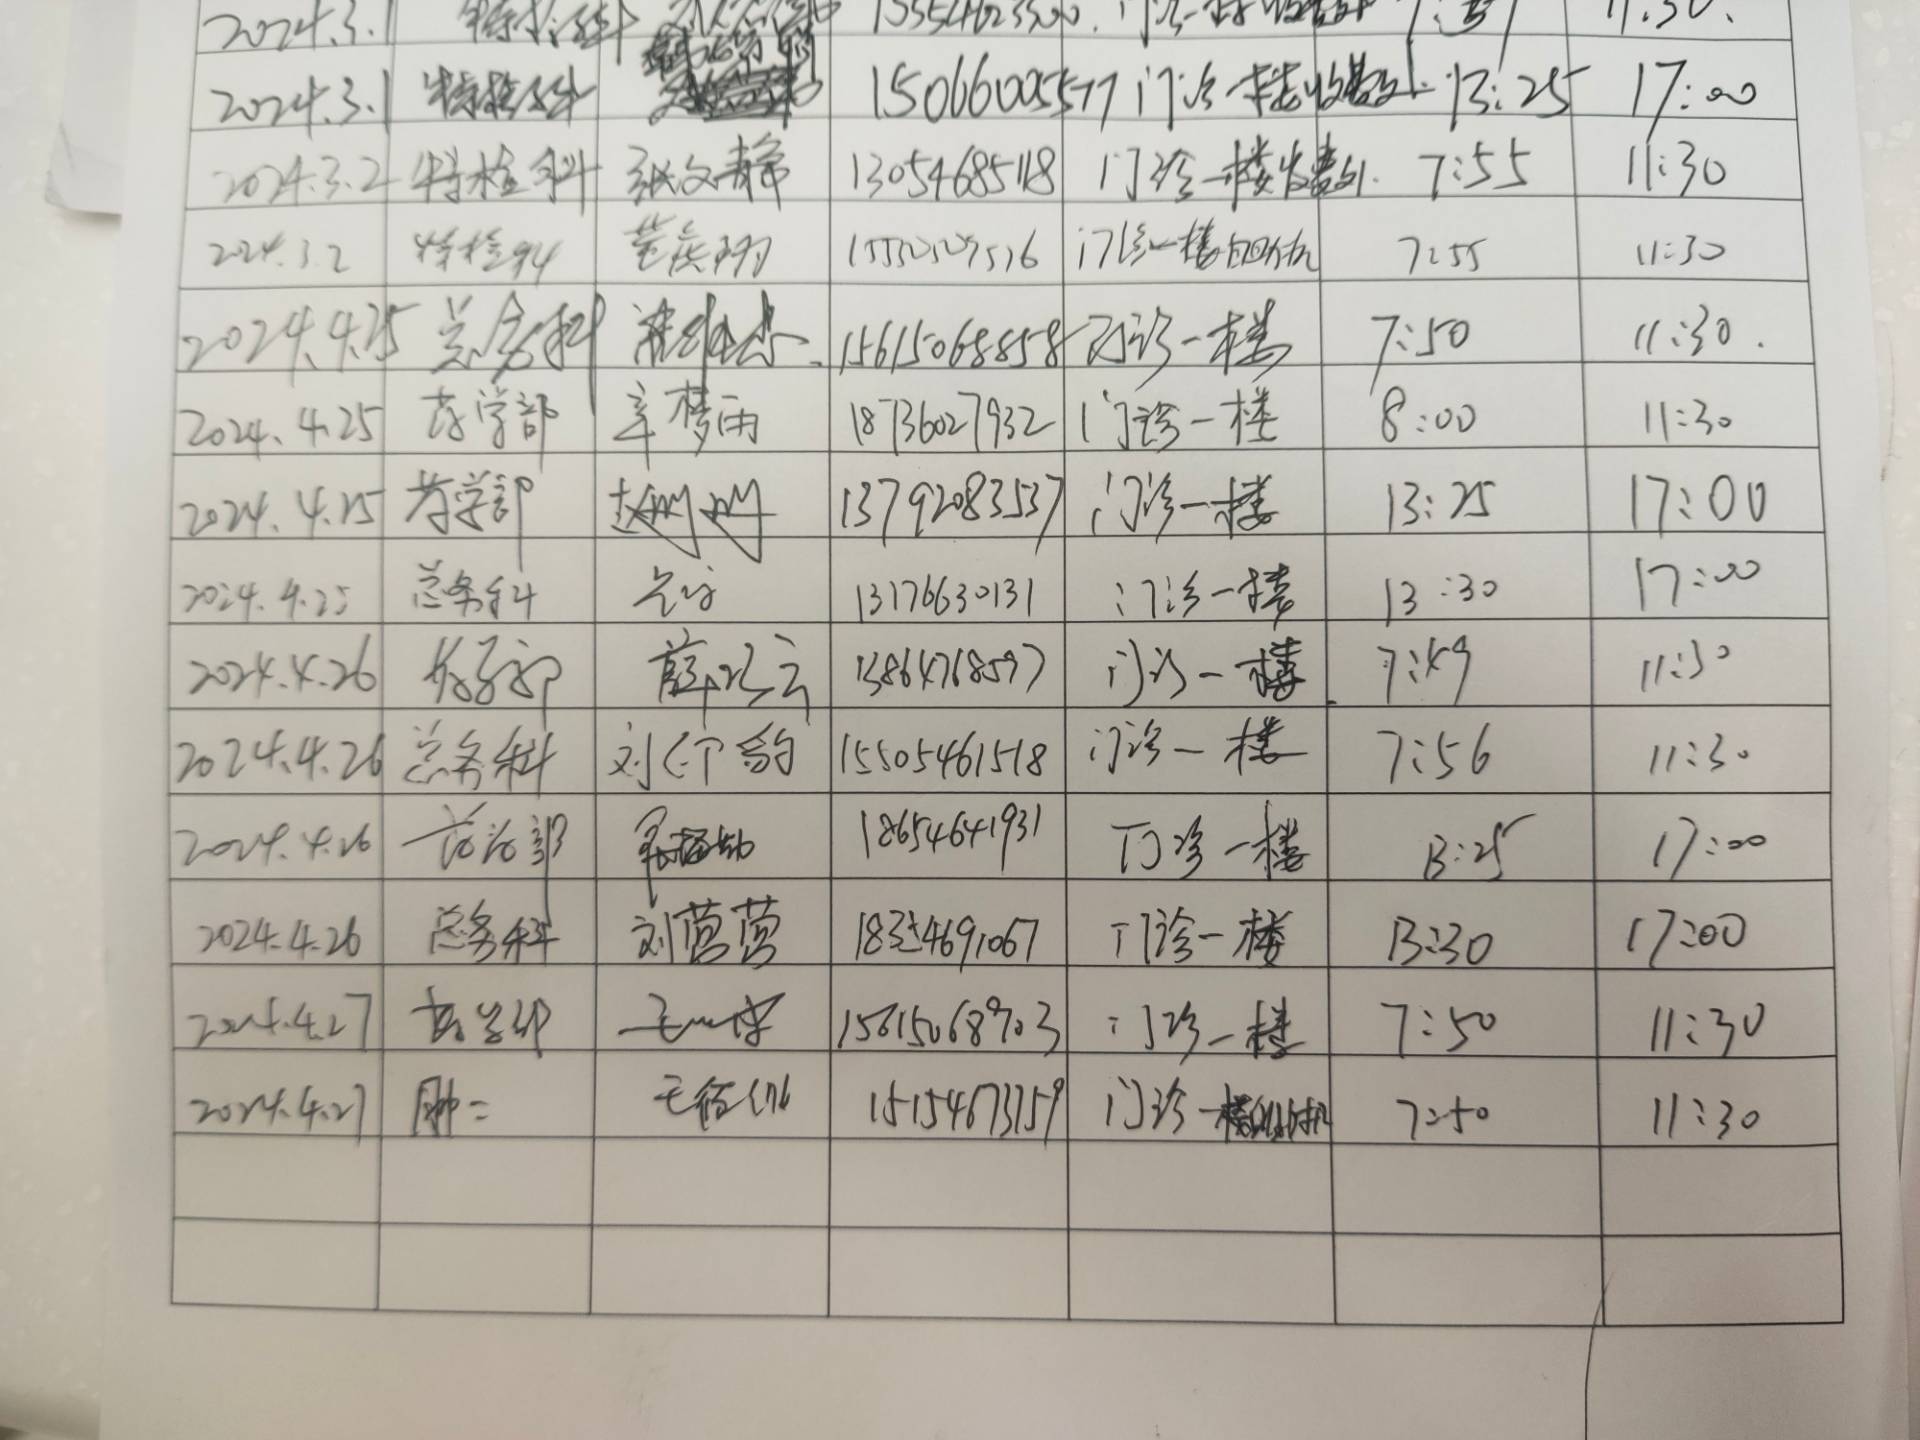 2024.3.1 特检科 11:30.
2024.3.1 特检科 15066005577 门诊一楼收费处 13:25 17:00
2024.3.2 特检科 张文静 13054685118 门诊一楼收费处. 7:55 11:30
2024.3.2 特检科 门诊一楼自助机 7:55 11:30
2024.4.25 总务科 15615068858 门诊一楼 7:50 11:30.
2024.4.25 药学部 辛梦雨 18736027932 门诊一楼 8:00 11:30
2024.4.25 药学部 赵娜娜 13792083537 门诊一楼 13:25 17:00
2024.4.25 总务科 13176630131 门诊一楼 13:30 17:00
2024.4.26 药学部 薛 云 13864768597 门诊一楼 7:49 11:30
2024.4.26 总务科 刘 15505461518 门诊一楼 7:56 11:30
2024.4.26 18654641931 门诊一楼 13:25 17:00
2024.4.26 总务科 刘莹莹 门诊一楼 13:30 17:00
2024.4.27 药学部 15615068903 门诊一楼 7:50 11:30
2024.4.27 肿二 15154673759 门诊一楼自助机 7:50 11:30